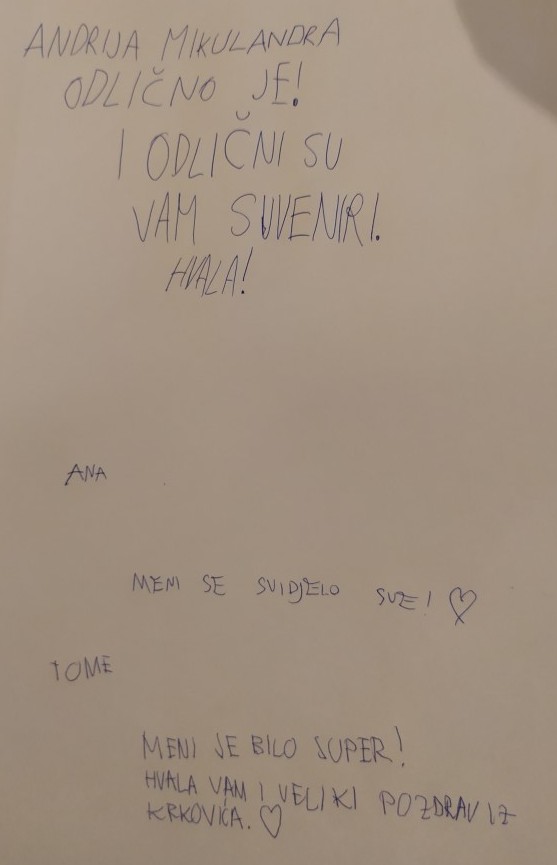 ANDRIJA MIKULANDRA
ODLIČNO JE!
I ODLIČNI SU
VAM SUVENIRI.
HVALA!
ANA
MENI SE SVIDJELO SVE! ♡
TOME
MENI JE BILO SUPER!
HVALA VAM I VELIKI POZDRAV IZ
KRKOVIĆA. ♡